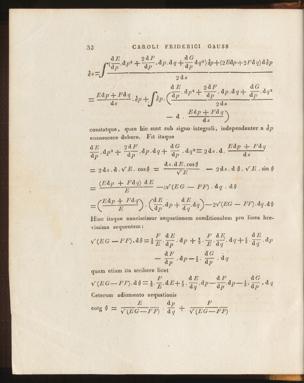 32 CAROLI FRIDERICI GAUSS
δs = ∫ (dE/dp . dp² + 2dF/dp . dp . dq + dG/dp . dq²) δp + (2Edp + 2Fdq) dδp / 2ds
= Edp + Fdq / ds . δp + ∫ δp . ( dE/dp . dp² + 2dF/dp . dp . dq + dG/dp . dq² / 2ds
— d . Edp + Fdq / ds )
constatque, quae hic sunt sub signo integrali, independenter a δp
evanescere debere. Fit itaque
dE/dp . dp² + 2dF/dp . dp . dq + dG/dp . dq² = 2ds . d . Edp + Fdq / ds
= 2ds . d . √E . cos θ = ds . dE . cos θ / √E — 2ds . dθ . √E . sin θ
= (Edp + Fdq) dE / E — 2√(EG — FF) . dq . dθ
= (Edp + Fdq / E) . (dE/dp . dp + dE/dq . dq) — 2√(EG — FF) . dq . dθ
Hinc itaque nanciscimur aequationem conditionalem pro linea bre-
vissima sequentem:
√(EG — FF) . dθ = ½ . F/E . dE/dp . dp + ½ . F/E . dE/dq . dq + ½ . dE/dq . dp
— dF/dp . dp — ½ . dG/dp . dq
quam etiam ita scribere licet
√(EG — FF) . dθ = ½ . F/E . dE + ½ . dE/dq . dp — dF/dp . dp — ½ . dG/dp . dq
Ceterum adiumento aequationis
cotg θ = E/√(EG — FF) . dp/dq + F/√(EG — FF)